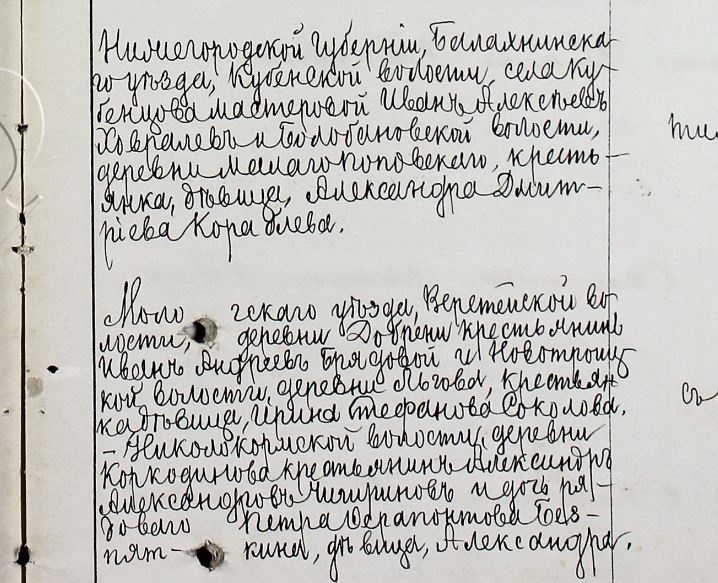 Нижегородской Губерніи, Балахнинска-
го уѣзда, Кубенской волости, села Ку-
бенцова мастеровой Иванъ Алексѣевъ
Ховралевъ и Болобановской волости,
деревни Малаго Поповскаго, кресть-
янка, дѣвица, Александра Дмит-
ріева Кораблева.
Моло гскаго уѣзда, Веретейской во-
лости, деревни Добрени крестьянинъ
Иванъ Андреевъ Брядовой и Новотроиц
кой волости, деревни Льгова, крестьян
ка дѣвица, Ирина Стефанова Соколова.
съ
- Николокормской волости, деревни
Коркодинова крестьянинъ Александръ
Александровъ Чичириновъ и дочь ря-
доваго Петра Ферапонтова Без-
пят- кина, дѣвица, Александра.